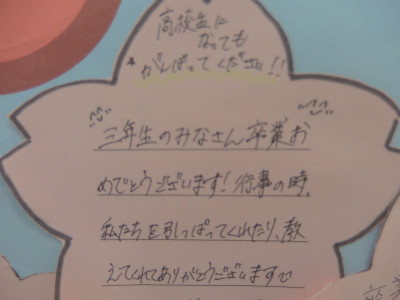 高校生に
なっても
がんばってください!!
三年生のみなさん卒業お
めでとうございます!行事の時、
私たちを引っぱってくれたり、教
えてくれてありがとうございますで